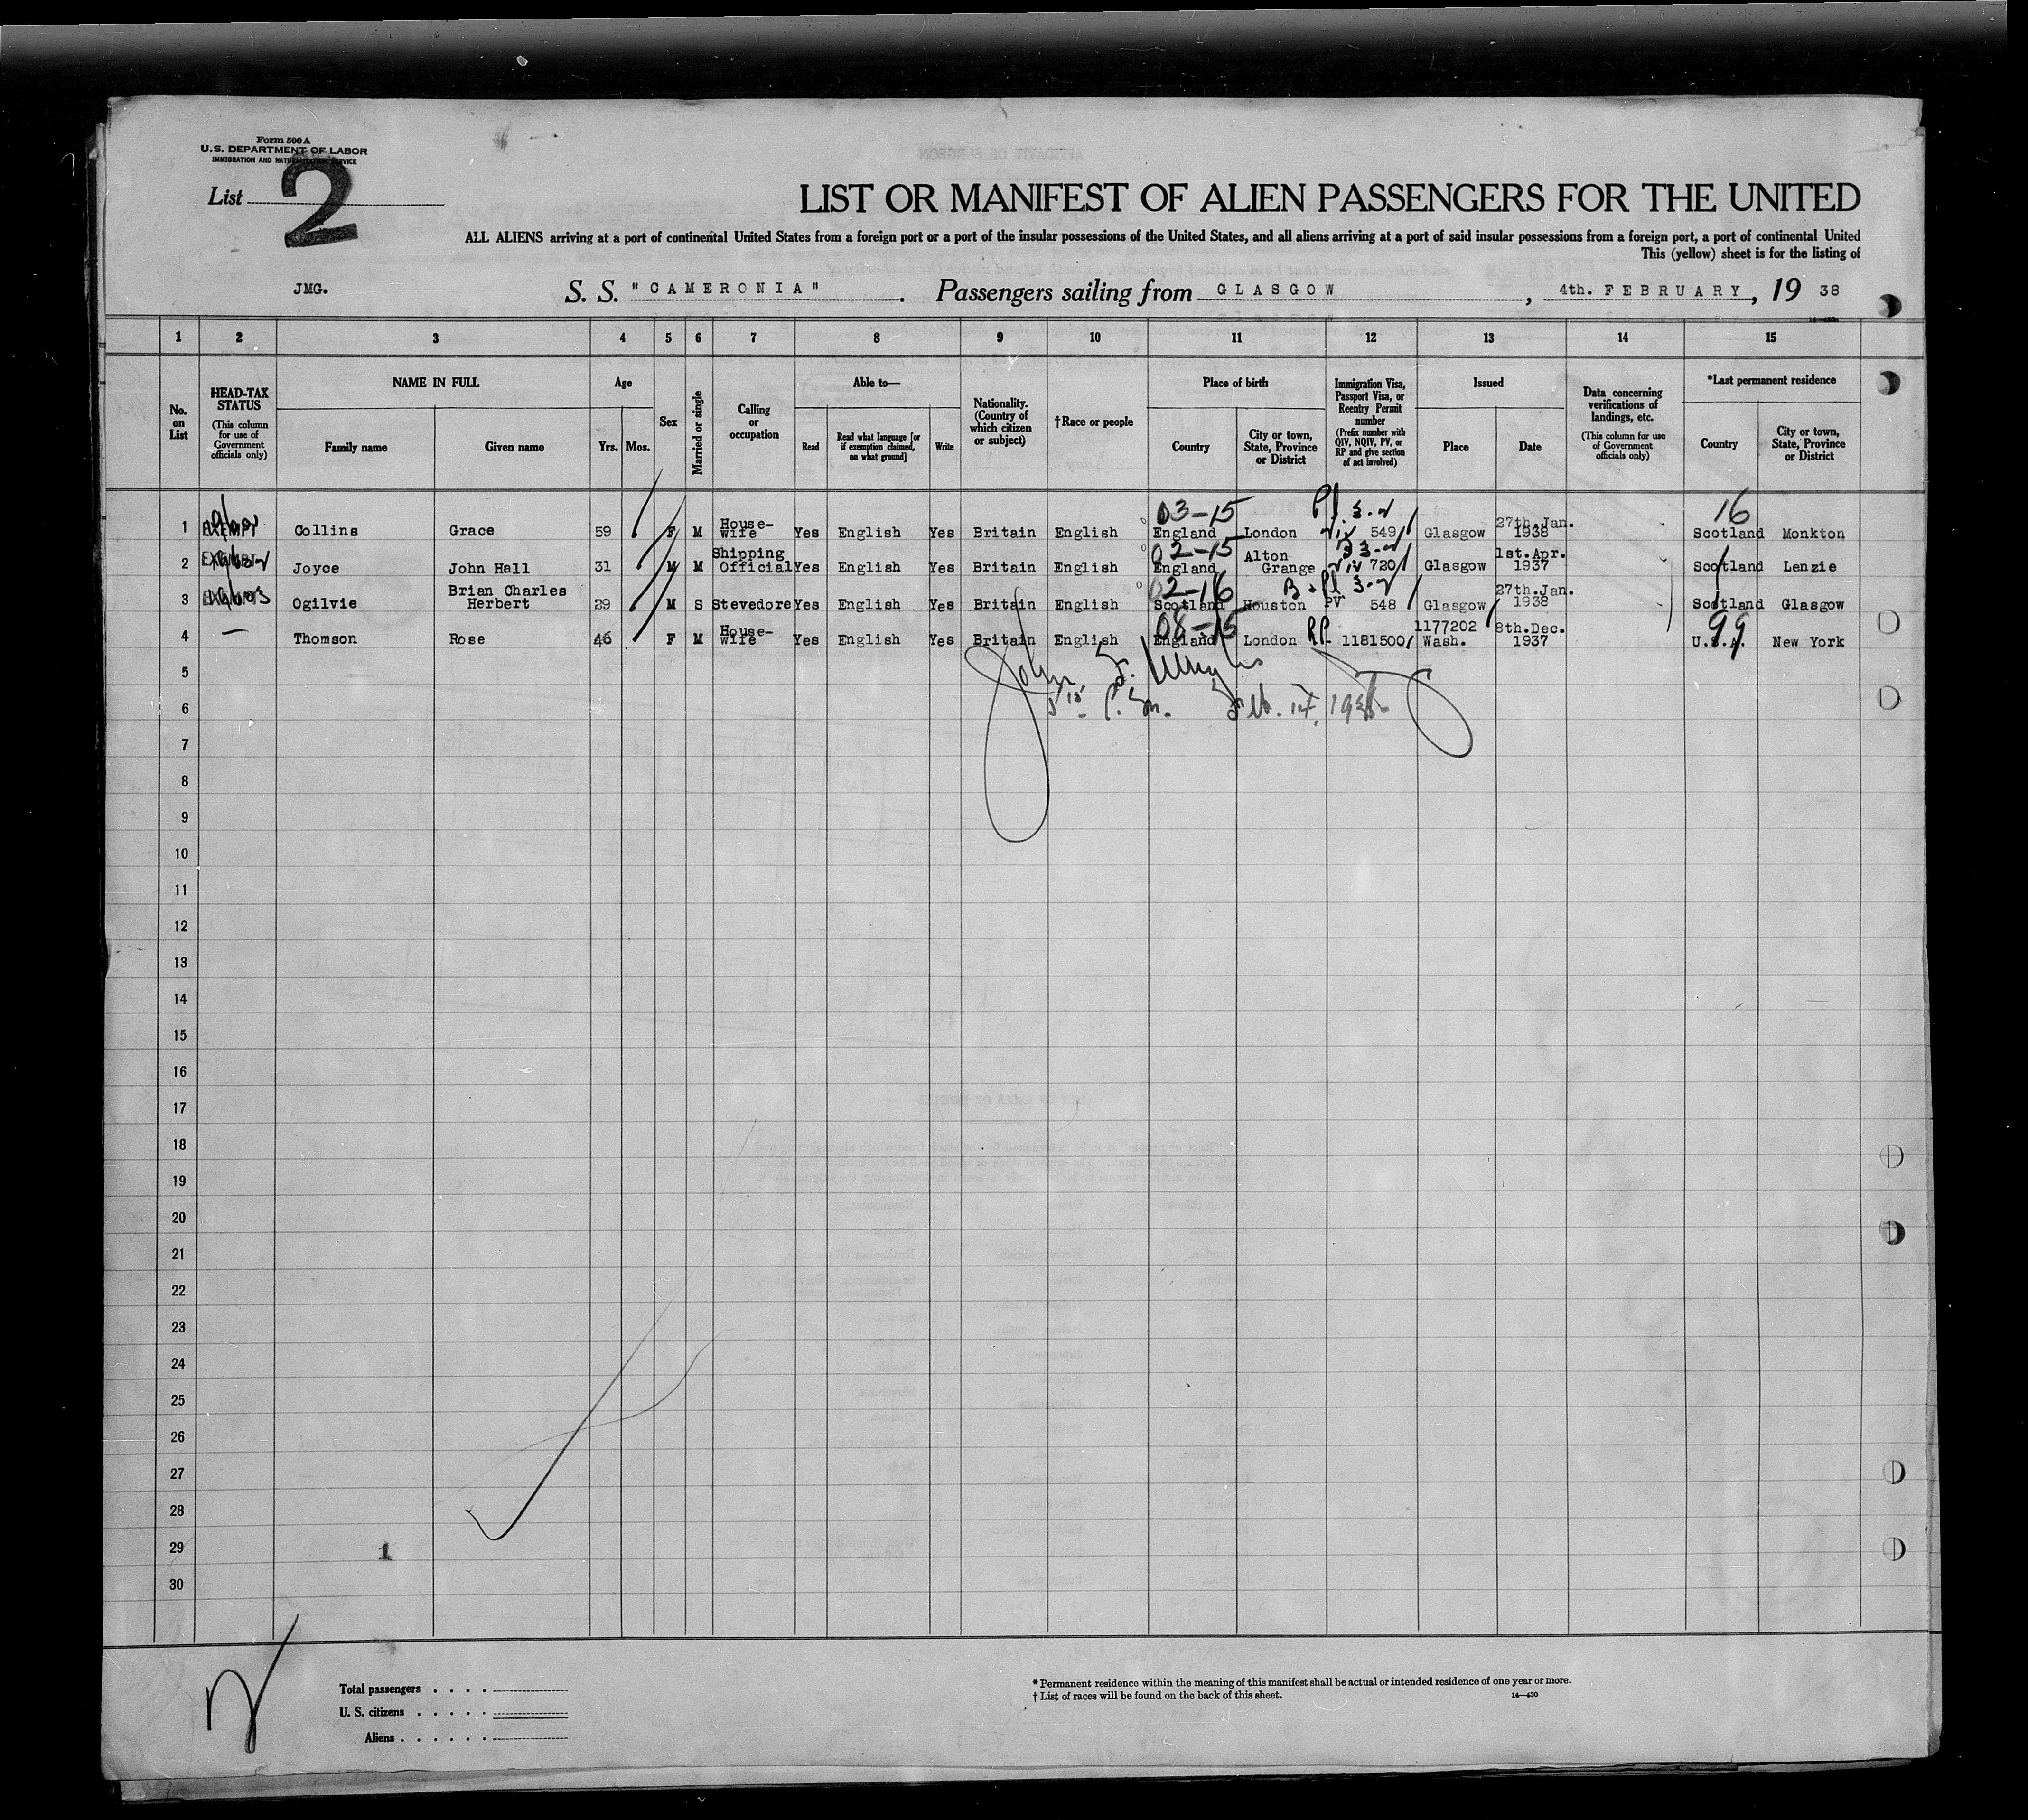 Form 500 A
U. S. DEPARTMENT OF LABOR
IMMIGRATION AND NATURALIZATION SERVICE
List 2
LIST OR MANIFEST OF ALIEN PASSENGERS FOR THE UNITED
ALL ALIENS arriving at a port of continental United States from a foreign port or a port of the insular possessions of the United States, and all aliens arriving at a port of said insular possessions from a foreign port, a port of continental United
This (yellow) sheet is for the listing of
JMG. S. S. "CAMERONIA". Passengers sailing from GLASGOW, 4th. FEBRUARY, 19 38
1 2 3 4 5 6 7 8 9 10 11 12 13 14 15
No. on List
HEAD-TAX STATUS
(This column for use of Government officials only)
NAME IN FULL
Family name Given name
Age
Yrs. Mos.
Sex
Married or single
Calling or occupation
Able to—
Read
Read what language [or if exemption claimed, on what ground]
Write
Nationality. (Country of which citizen or subject)
†Race or people
Place of birth
Country
City or town, State, Province or District
Immigration Visa, Passport Visa, or Reentry Permit number
(Prefix number with QIV, NQIV, PV, or RP and give section of act involved)
Issued
Place Date
Data concerning verifications of landings, etc.
(This column for use of Government officials only)
*Last permanent residence
Country
City or town, State, Province or District
03-15 16
1 EXEMPT Collins Grace 59 F M House-wife Yes English Yes Britain English England London 549 Glasgow 27th.Jan. 1938 Scotland Monkton
02-15
2 EXEMPT Joyce John Hall 31 M M Shipping Official Yes English Yes Britain English England Alton Grange 720 Glasgow 1st.Apr. 1937 Scotland Lenzie
02-16
3 EXEMPT Ogilvie Brian Charles Herbert 29 M S Stevedore Yes English Yes Britain English Scotland Houston PV 548 Glasgow 27th.Jan. 1938 Scotland Glasgow
08-15 99
4 — Thomson Rose 46 F M House-wife Yes English Yes Britain English England London RP 1181500 1177202 Wash. 8th.Dec. 1937 U.S.A. New York
5
6
7
8
9
10
11
12
13
14
15
16
17
18
19
20
21
22
23
24
25
26
27
28
29 1
30
Total passengers . . . .
U. S. citizens . . . . .
Aliens . . . . . .
* Permanent residence within the meaning of this manifest shall be actual or intended residence of one year or more.
† List of races will be found on the back of this sheet. 14—430